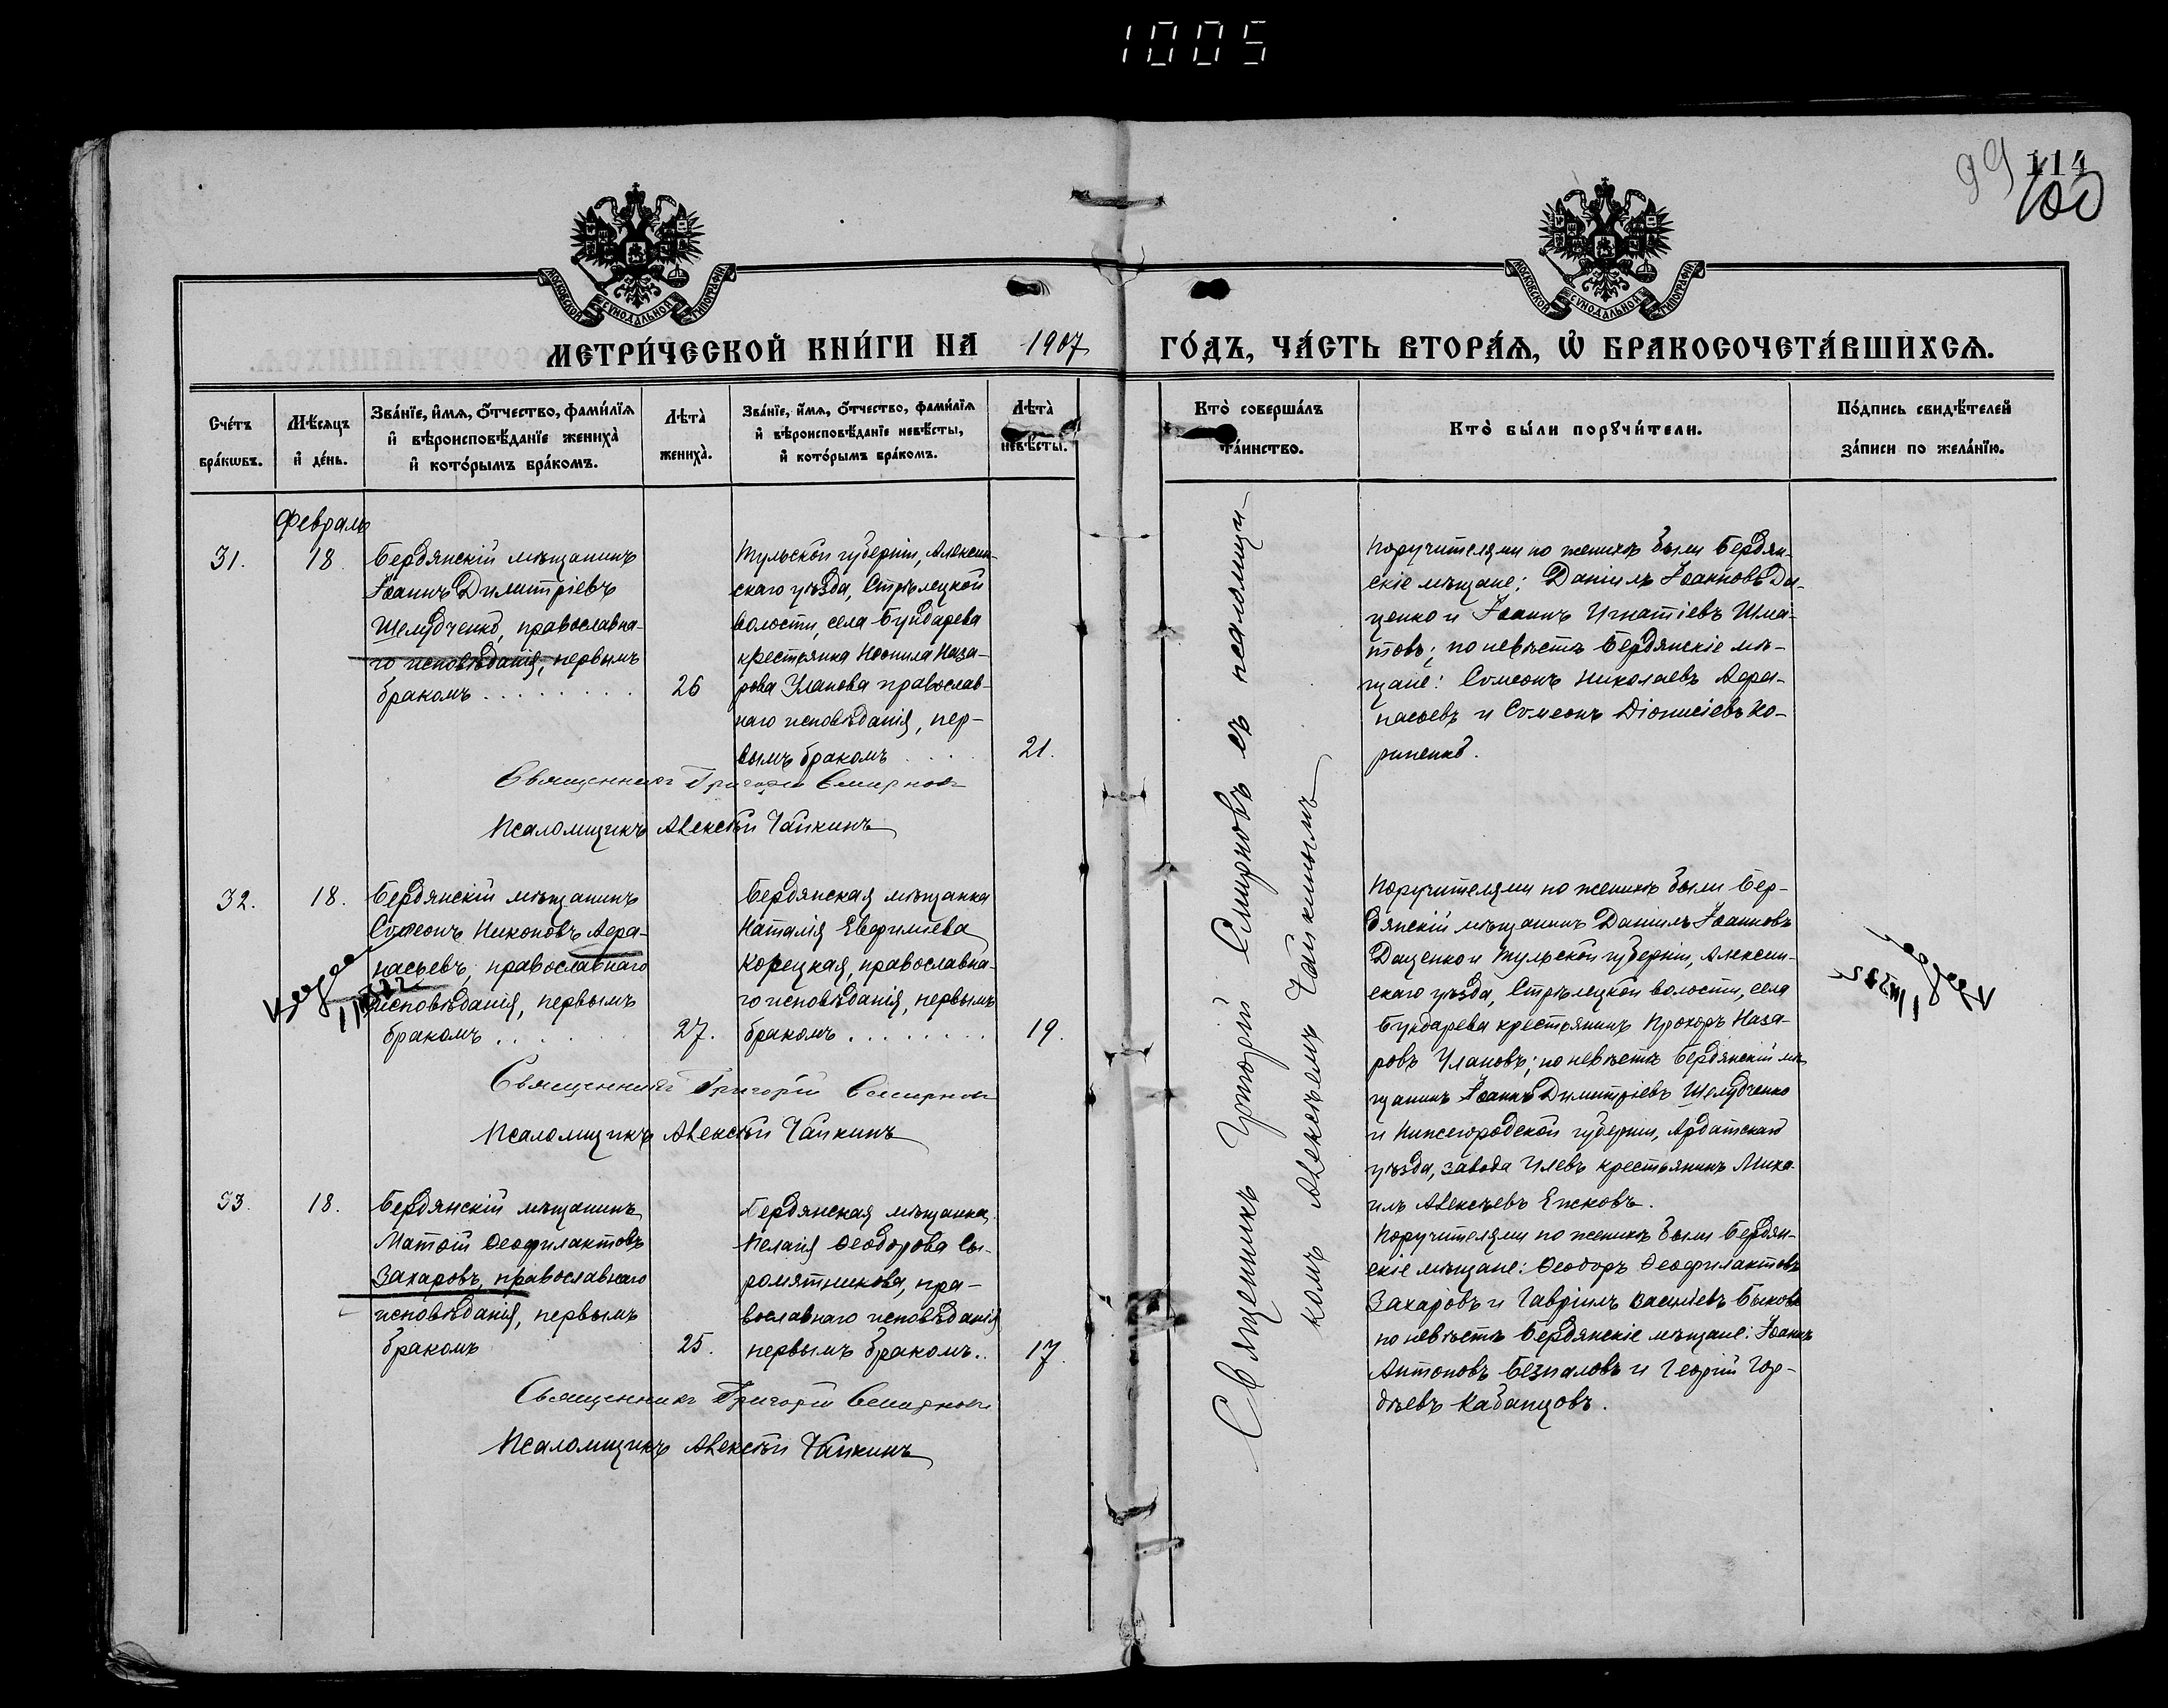 1005
99
114
100
МОСКОВСКОЙ СѴНОДАЛЬНОЙ ТИПОГРАФІИ
МОСКОВСКОЙ СѴНОДАЛЬНОЙ ТИПОГРАФІИ
МЕТРИ́ЧЕСКОЙ КНИ́ГИ НА 1907 ГО́ДЪ, ЧА́СТЬ ВТОРА́Ѧ, Ѡ҆ БРАКОСОЧЕТА́ВШИХСѦ.
Сче́тъ бра́кѡвъ.
Мѣ́сѧцъ и҆ де́нь.
Зва́нїе, и҆́мѧ, ѻ҆́тчество, фами́лїѧ
и҆ вѣроисповѣ́данїе жениха̀
и҆ кото́рымъ бра́комъ.
Лѣта̀ жениха̀.
Зва́нїе, и҆́мѧ, ѻ҆́тчество, фами́лїѧ
и҆ вѣроисповѣ́данїе невѣ́сты,
и҆ кото́рымъ бра́комъ.
Лѣта̀ невѣ́сты.
Кто̀ соверша́лъ та́инство.
Кто̀ бы́ли порꙋчи́тели.
По́дпись свидѣ́телей
за́писи по жела́нїю.
Февраль
31.
18.
Бердянскій мѣщанинъ
Іоаннъ Димитріевъ
Шелудченко, православна-
го исповѣданія, первымъ
бракомъ . . . . . . . .
26
Тульской губерніи, Алексин-
скаго уѣзда, Стрѣлецкой
волости, села Бундарева
крестьянка Неонила Наза-
рова Уланова православ-
наго исповѣданія, пер-
вымъ бракомъ . . . .
21.
Священникъ Григорій Смирновъ
Псаломщикъ Алексѣй Чайкинъ
Поручителями по женихѣ были Бердян-
скіе мѣщане: Даніилъ Іоанновъ Да-
ценко и Іоаннъ Игнатіевъ Шма-
товъ; по невѣстѣ Бердянскіе мѣ-
щане: Сѵмеонъ Николаевъ Аѳа-
насьевъ и Сѵмеонъ Діонисіевъ Ко-
риненко.
32.
18.
Бердянскій мѣщанинъ
Сѵмеонъ Никоновъ Аѳа-
насьевъ, православнаго
исповѣданія, первымъ
бракомъ . . . . .
27.
Бердянская мѣщанка
Наталія Евфиміева
Корецкая, православна-
го исповѣданія, первымъ
бракомъ . . . . . . . .
19.
Священникъ Григорій Смирновъ
Псаломщикъ Алексѣй Чайкинъ
Поручителями по женихѣ были Бер-
дянскій мѣщанинъ Даніилъ Іоанновъ
Даценко и Тульской губерніи, Алексин-
скаго уѣзда, Стрѣлецкой волости, села
Бундарева крестьянинъ Прохоръ Наза-
ровъ Улановъ; по невѣстѣ Бердянскій мѣ-
щанинъ Іоаннъ Димитріевъ Шелудченко
и Нижегородской губерніи, Ардатскаго
уѣзда, завода Илевъ крестьянинъ Миха-
илъ Алексѣевъ Ежковъ.
33.
18.
Бердянскій мѣщанинъ
Матѳій Ѳеофилактовъ
Захаровъ, православнаго
исповѣданія, первымъ
бракомъ
25.
Бердянская мѣщанка,
Пелагія Ѳеодорова Сы-
ромятникова, пра-
вославнаго исповѣданія
первымъ бракомъ..
17.
Священникъ Григорій Смирновъ
Псаломщикъ Алексѣй Чайкинъ
Поручителями по женихѣ были Бердян-
скіе мѣщане: Ѳеодоръ Ѳеофилактовъ
Захаровъ и Гавріилъ Василіевъ Быковъ
по невѣстѣ Бердянскіе мѣщане: Іоаннъ
Антоновъ Безпаловъ и Георгій Гор-
дѣевъ Кабанцовъ.
Священникъ Григорій Смирновъ съ псаломщи-
комъ Алексѣемъ Чайкинымъ